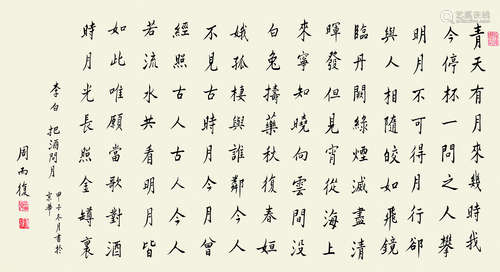 青天有月來幾時我
今停杯一問之人攀
明月不可得月行卻
與人相隨皎如飛鏡
臨丹闕綠煙滅盡清
暉發但見宵從海上
來寧知曉向雲間沒
白兔擣藥秋復春姮
娥孤棲與誰鄰今人
不見古時月今月曾
經照古人古人今人
若流水共看明月皆
如此唯願當歌對酒
時月光長照金罇裏
李白 把酒問月
甲子冬月書於
京華
周而復